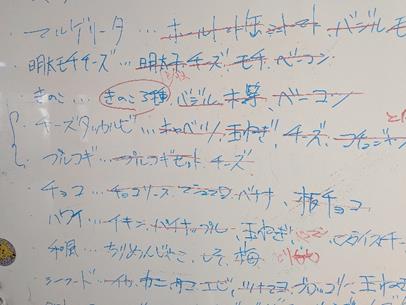 マルゲリータ … ホールトマト缶 トマト バジル モ
明太モチチーズ … 明太子 チーズ モチ ベーコン
きのこ … きのこ3種 バジル ベーコン
チーズタッカルビ … キャベツ 玉ねぎ、チーズ、コチュジャン
プルコギ … プルコギセット チーズ
チョコ … チョコソース マシュマロ バナナ、板チョコ
ハワイ … パイナップル、玉ねぎ、スライスチー
和風 … ちりめんじゃこ、しそ、梅、
シーフード … イカ カニ タコ エビ、ツナマヨ ブロッコリー、玉ねぎ